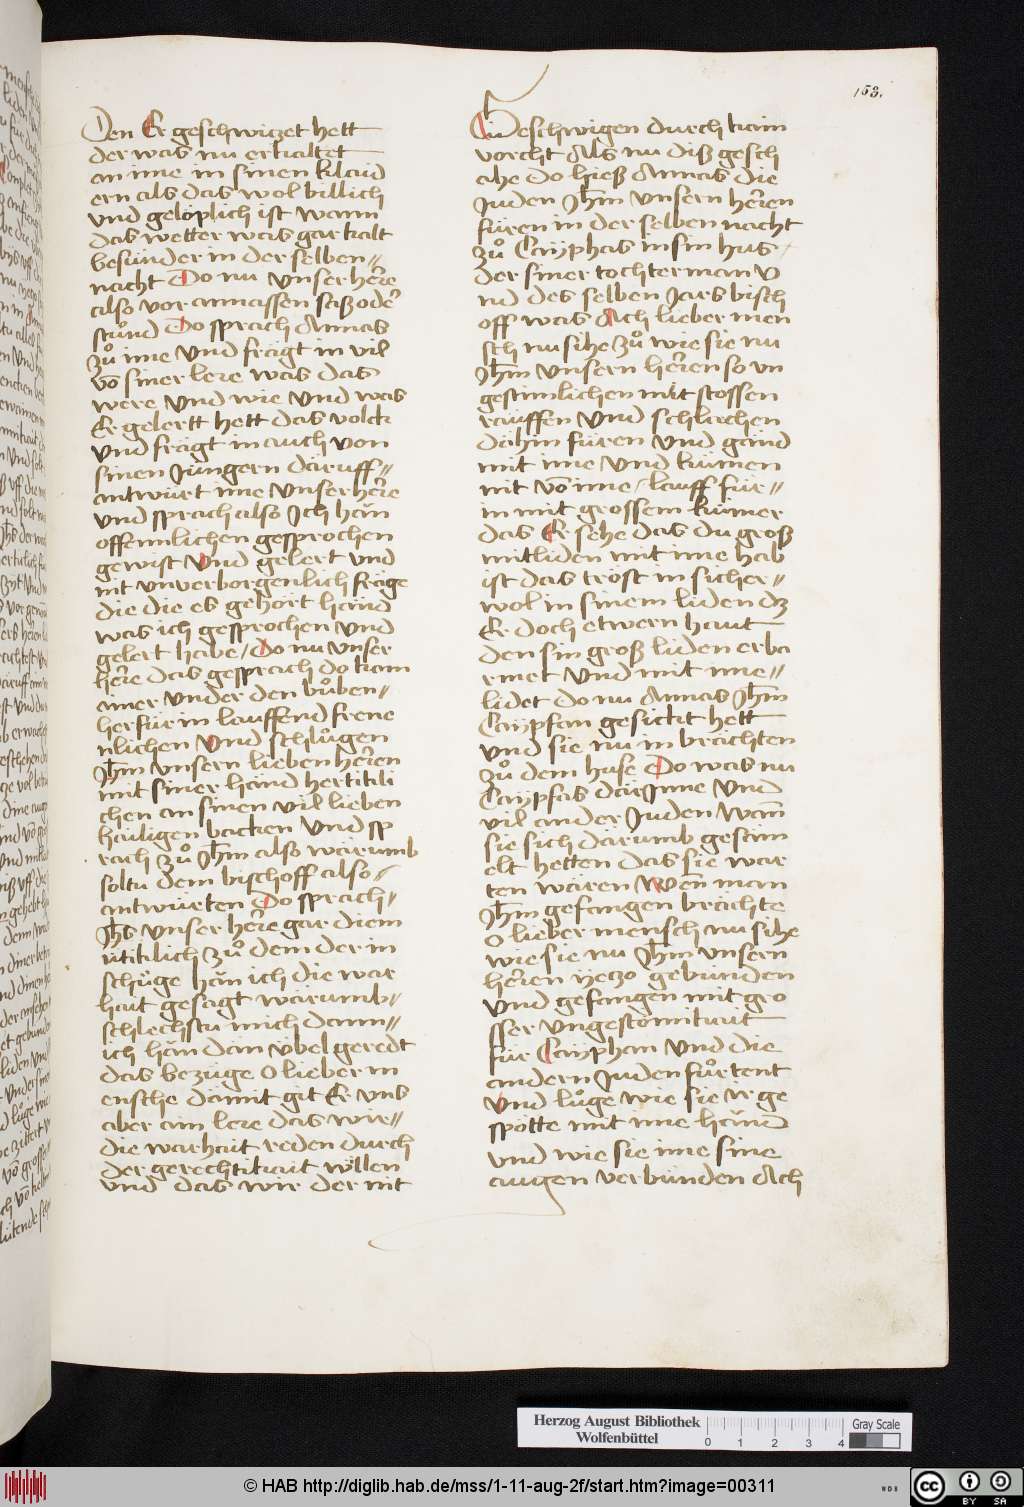 153.
Den Er geschwitzet hett
der was nu erkaltet
an ime in sinen klaid
ern als das wol billich
vnd gelöplich ist wann
das wetter was gar kalt
besunder in der selben〃
nacht Do nu vnser here
also vor annassen saß oder
stůnd Do sprach Annas
zů ime vnd fragt in vil
vō siner lere was das
were vnd wie vnd was
Er gelertt hett das volck
vnd fragt in auch von
sinen Jüngern däruff〃
antwürt ime vnser here
vnd sprach also Ich hän
offennlichen gesprochen
gewist vnd gelert vnd
nit vnverborgenlich frage
die die es gehört händ
was ich gesprochen vnd
gelert habe / Do nu vnser
here das gesprach do kam
ainer vnder den bůben〃
herfür in lauffend frene
nlichen vnd schlůgen
Jhm vnsern lieben heren
mit siner händ hertikli
chen an sinen vil lieben
hailigen backen vnd sp
rach zů Jhm also warumb
soltu dem bischoff also〃
antwürten Do sprach〃
Jhs vnser here gar diem
ütiklich zů dem der in
schlüge hän ich die war
hait gesagt warumb〃
schlechstu mich dann〃
ich hän dan vbel geredt
das bezüge O lieber m
ensche dämit git Er vns
aber ain lere das wir〃
die warhait reden durch
der gerechtikait willen
vnd das wir der nit
Geschwigen durch kain
vorcht Als nu diß gesch
ahe do hieß Annas die
Juden Jhm vnsern heren
füren in der selben nacht
zů Cayphas in sin hus
der siner tochter man v
nd des selben Jars bisch
off was Ach lieber men
sch nu sihe zů wie sie nu
Jhm vnsern heren so vn
gestimlichen mit stossen
räuffen vnd schlachen
dähin füren vnd gänd
mit ime vnd kumen
nit vō ime / lauff für〃
in mit grossem kumer
das Er sehe das du groß
mitliden mit ime hab
ist das tröst in sicher〃
wol in sinem liden dz
Er doch etwern hautt
den sin groß liden erba
rmet vnd mit ime〃
lidet Do nu Annas Jhm
Cayfan gesickt hett
vnd sie nu in brachten
zů dem huse Do was nu
Caypfas därjnne vnd
vil ander Juden wann
sie sich darumb gesam
elt hetten das sie war
ten wären wen man
Jhm gefangen brächte
O lieber mensch nu sihe
wie sie nu Jhm vnsern
heren yetzo gebunden
vnd gefangen mit gro
sser vngestömikait
für Cayphan vnd die
andern Juden fůrtent
vnd lůge wie sie ir ge
spötte mit ime händ
vnd wie sie ime sine
augen verbunden Ach
Herzog August Bibliothek
Wolfenbüttel
0 1 2 3 4
Gray Scale
© HAB http://diglib.hab.de/mss/1-11-aug-2f/start.htm?image=00311
WDB
cc BY SA